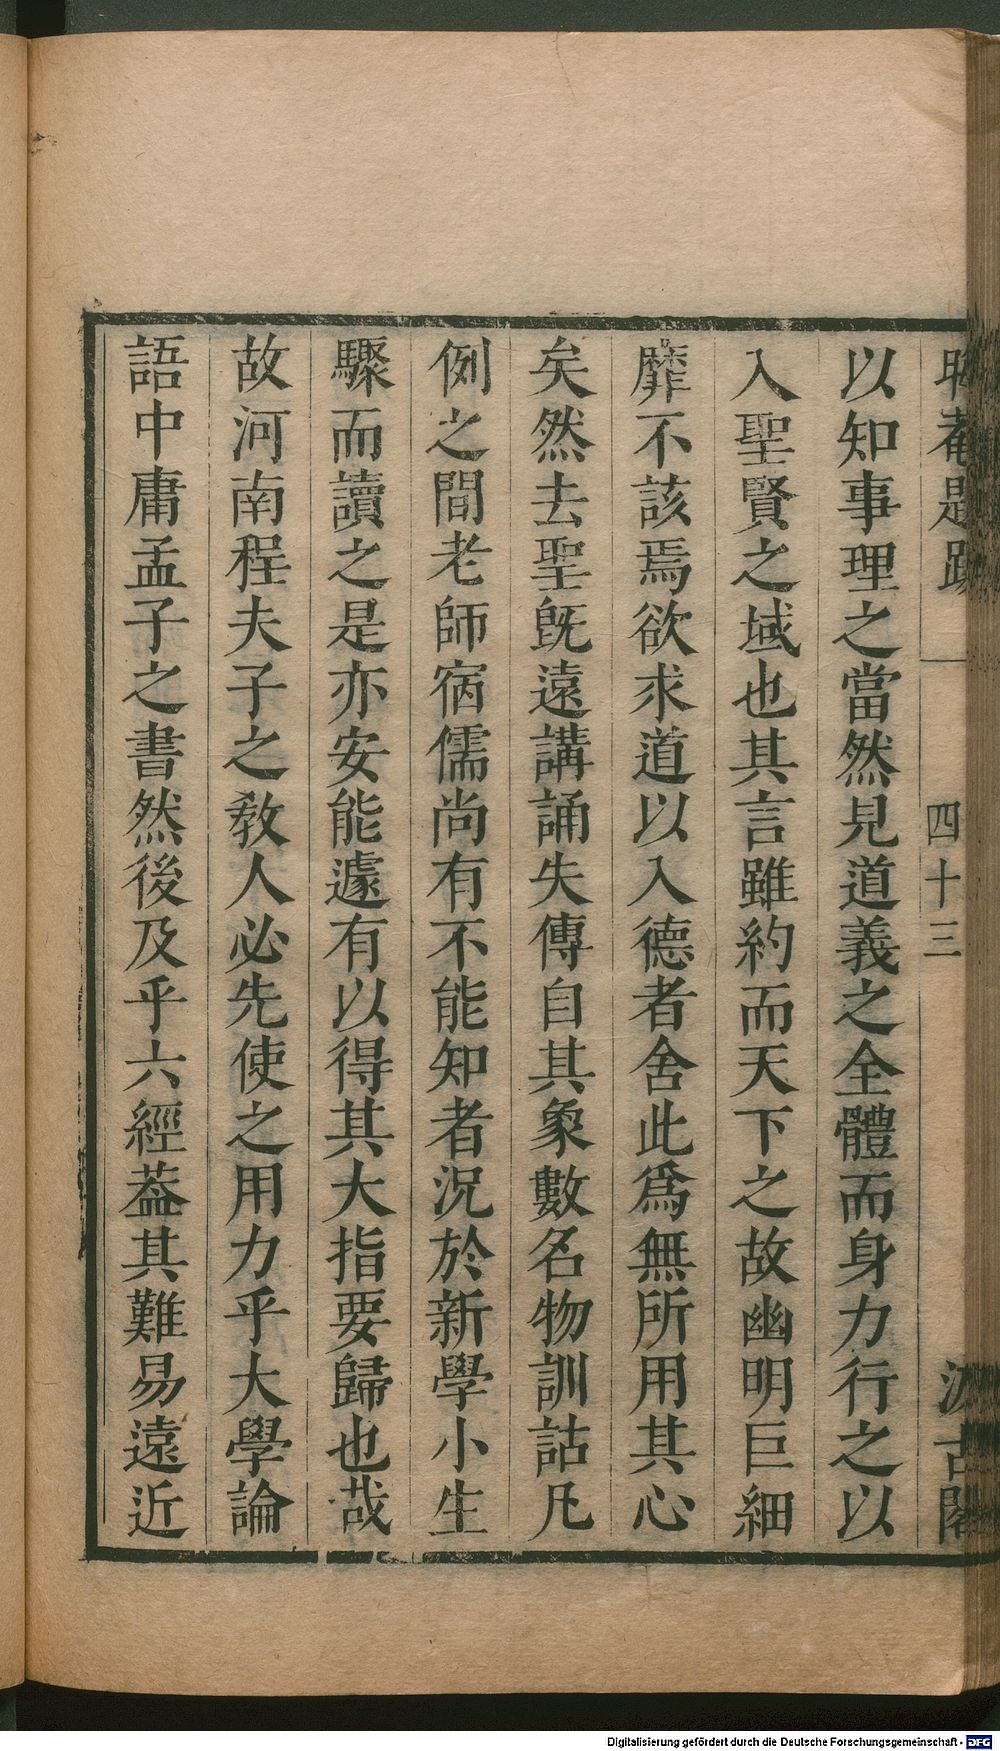 晦菴題跋一 四十三 汲古閣
以知事理之當然見道義之全體而身力行之以
入聖賢之域也其言雖約而天下之故幽明巨細
靡不該焉欲求道以入德者舍此爲無所用其心
矣然去聖旣遠講誦失傳自其象數名物訓詁凡
例之間老師宿儒尚有不能知者況於新學小生
驟而讀之是亦安能遽有以得其大指要歸也哉
故河南程夫子之敎人必先使之用力乎大學論
語中庸孟子之書然後及乎六經葢其難易遠近
Digitalisierung gefördert durch die Deutsche Forschungsgemeinschaft - DFG